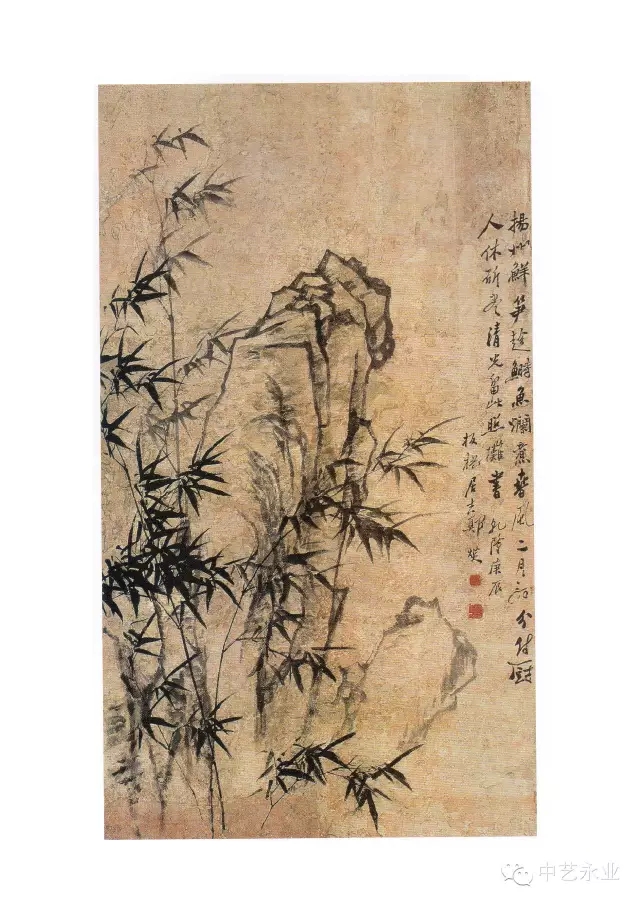 揚州鮮笋趁鰣魚爛煮春風二月初分付厨
人休斫尽清光留此照攤書
乾隆庚辰
板橋居士鄭燮
中艺永业